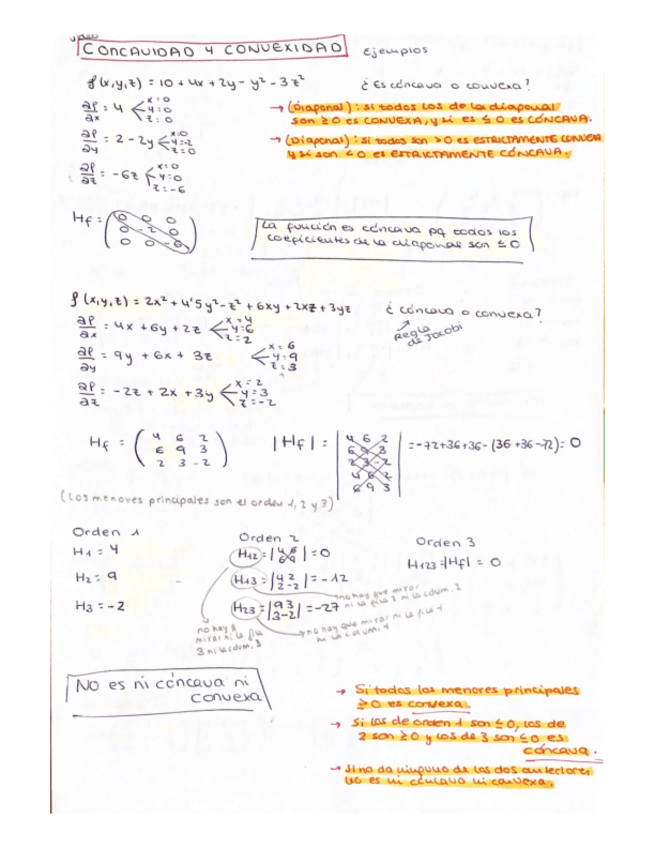 CONCAVIDAD Y CONVEXIDAD Ejemplos
f(x,y,z) = 10 + 4x + 2y - y² - 3z² ¿Es cóncava o convexa?
∂f/∂x = 4 x=0 y=0 z=0
→ (Diagonal): si todos los de la diagonal
son ≥0 es CONVEXA, y si es ≤0 es CÓNCAVA.
∂f/∂y = 2 - 2y x=0 y=-2 z=0
→ (Diagonal): si todos son >0 es ESTRICTAMENTE CONVEXA
y si son <0 es ESTRICTAMENTE CÓNCAVA.
∂f/∂z = -6z x=0 y=0 z=-6
Hf = (0 0 0
0 -2 0
0 0 -6)
La función es cóncava pq todos los
coeficientes de la diagonal son ≤0
f(x,y,z) = 2x² + 4'5y² - z² + 6xy + 2xz + 3yz ¿cóncava o convexa?
Regla
de Jacobi
∂f/∂x = 4x + 6y + 2z x=4 y=6 z=2
∂f/∂y = 9y + 6x + 3z x=6 y=9 z=3
∂f/∂z = -2z + 2x + 3y x=2 y=3 z=-2
Hf = (4 6 2
6 9 3
2 3 -2)
|Hf| = |4 6 2
6 9 3
2 3 -2
4 6 2
6 9 3| = -72+36+36-(36+36-72) = 0
(Los menores principales son el orden 1, 2 y 3)
Orden 1
H1 = 4
H2 = 9
H3 = -2
Orden 2
H12 = |4 6
6 9| = 0
H13 = |4 2
2 -2| = -12
no hay que mirar
ni la fila 2 ni la colum. 2
H23 = |9 3
3 -2| = -27
no hay q
mirar ni la fila
3 ni la colum. 3
no hay que mirar ni la fila 1
ni la colum. 1
Orden 3
H123 = |Hf| = 0
NO es ni cóncava ni
convexa
→ Si todos los menores principales
≥0 es convexa.
→ Si los de orden 1 son ≤0, los de
2 son ≥0 y los de 3 son ≤0 es
cóncava.
→ Si no da ninguno de los dos anteriores
no es ni cóncava ni convexa.